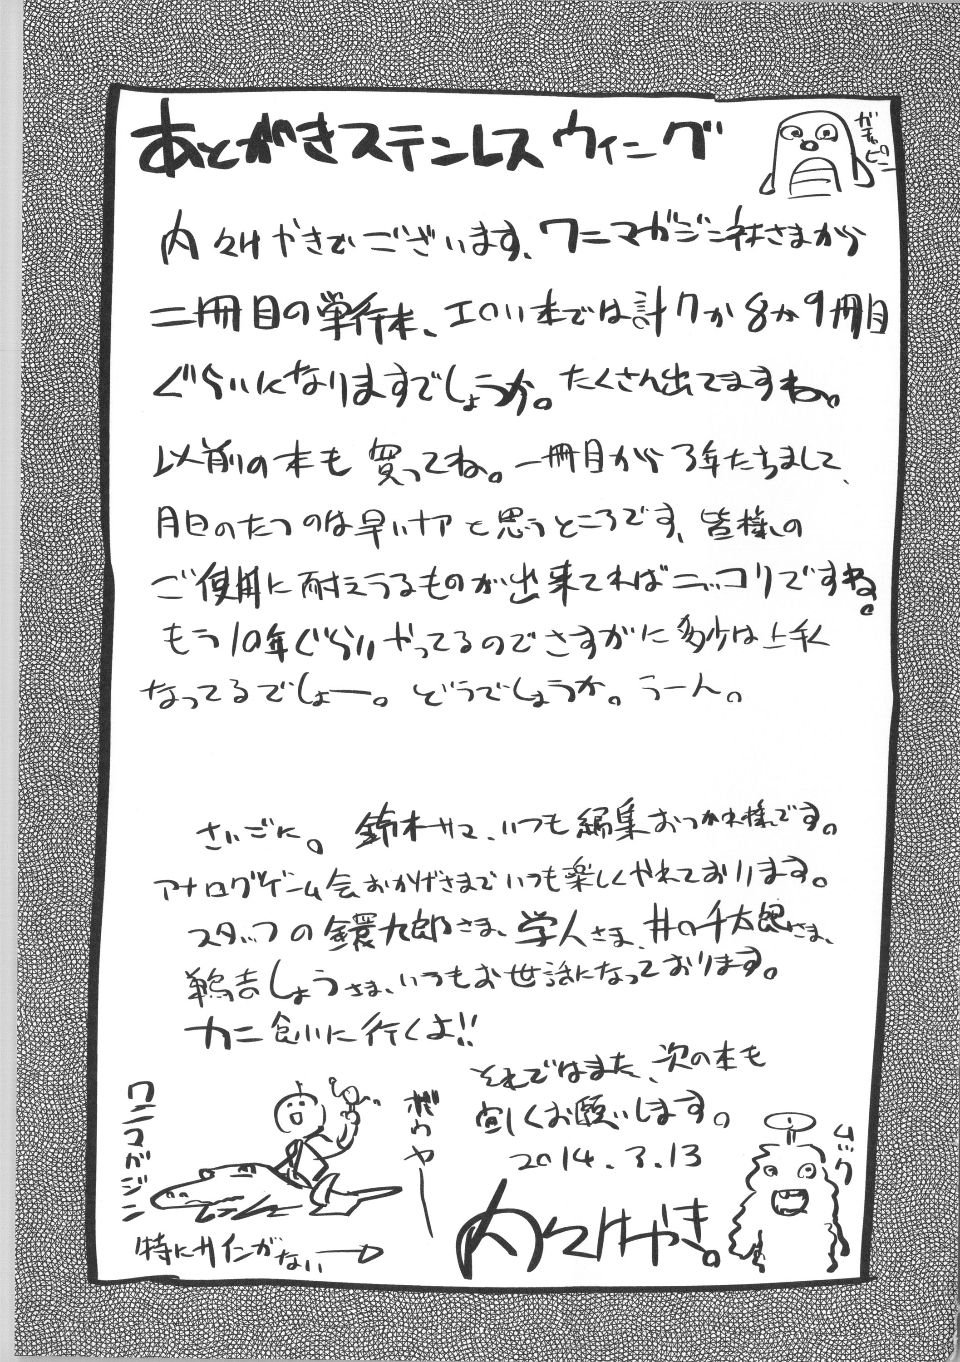 あとがきステンレスウィーング
ガチャピン
内々けやきでございます、ワニマガジン社さまから
二冊目の単行本、エロい本では計7か8か9冊目
ぐらいになりますでしょうか。たくさん出てますね。
以前の本も買ってね。一冊目から3年たちまして、
月日のたつのは早いナアと思うところです、皆様の
ご使用に耐えうるものが出来てればニッコリですね。
もう10年ぐらいやってるのでさすがに多少は上手く
なってるでしょー。どうでしょうか。うーん。
さいごに。鈴木サマ、いつも編集おつかれ様です。
アナログゲーム会おかげさまでいつも楽しくやれております。
スタッフの鐶九郎さま、学人さま、井の千太郎さま、
鵜吉しょうさま、いつもお世話になっております。
カニ食いに行くよ!!
それではまた、次の本も
宜しくお願いします。
2014.3.13
内々けやき。
ワニマガジン
ボウヤー
特にサインがない
ムック